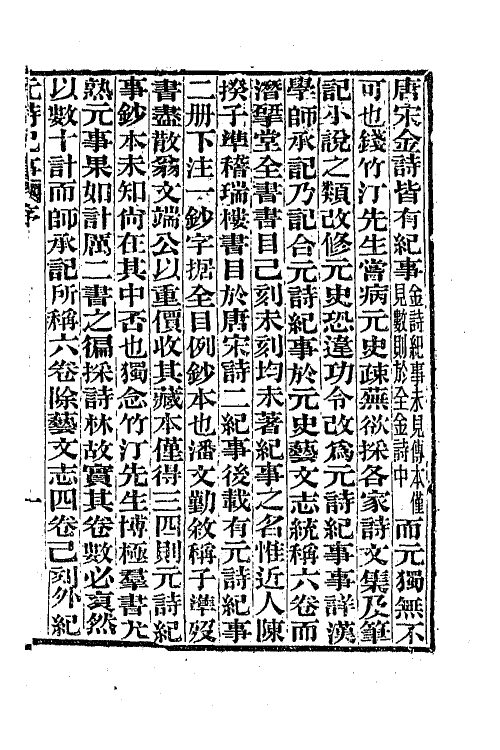 唐宋金詩皆有紀事金詩紀事未見傳本僅見數則於全金詩中而元獨無不
可也錢竹汀先生嘗病元史疎蕪欲採各家詩文集及筆
記小說之類改修元史恐違功令改爲元詩紀事事詳漢
學師承記乃記合元詩紀事於元史藝文志統稱六卷而
潛揅堂全書書目已刻未刻均未著紀事之名惟近人陳
揆子準稽瑞樓書目於唐宋詩二紀事後載有元詩紀事
二册下注一鈔字据全目例鈔本也潘文勤敘稱子準歿
書盡散翁文端公以重價收其藏本僅得三四則元詩紀
事鈔本未知尚在其中否也獨念竹汀先生博極羣書尤
熟元事果如計厲二書之徧採詩林故實其卷數必裒然
以數十計而師承記所稱六卷除藝文志四卷已刻外紀
元詩紀事 序 一